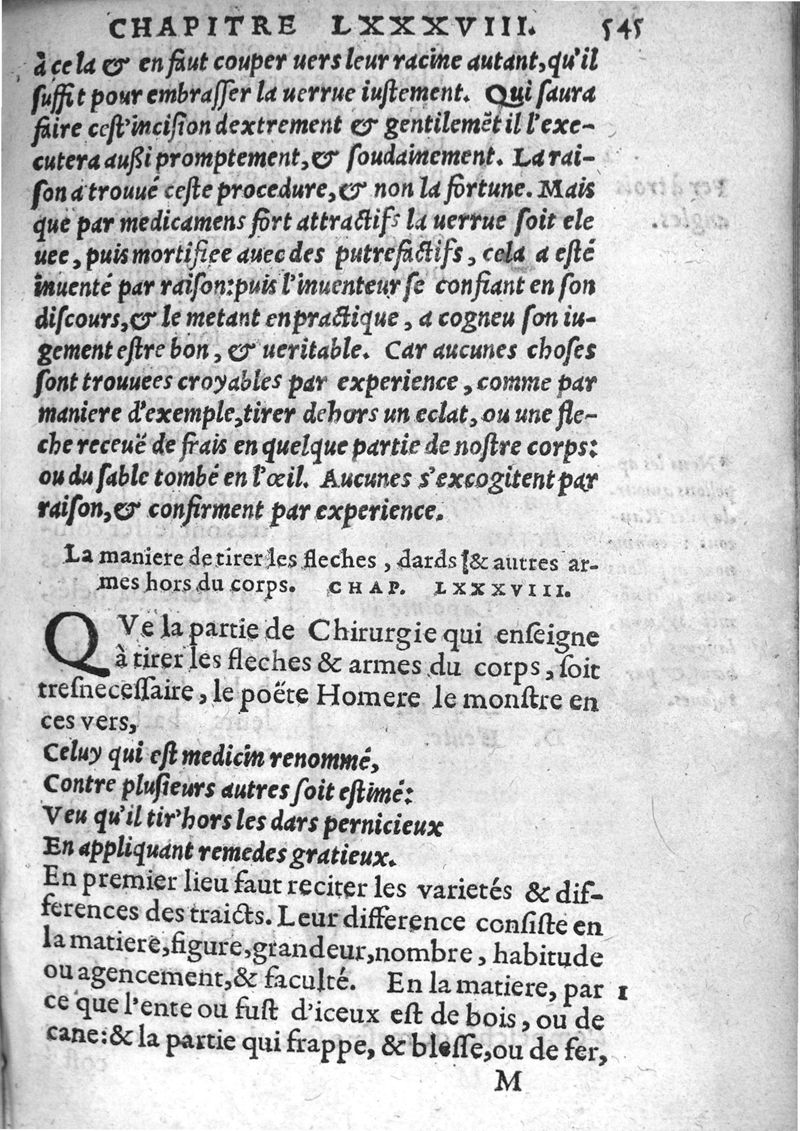 CHAPITRE LXXXVIII. 545
à cela & en faut couper uers leur racine autant, qu'il
ſuffit pour embraſſer la uerrue iuſtement. Qui ſaura
faire ceſt'inciſion dextrement & gentilemẽt il l'exe-
cutera außi promptement, & ſoudainement. La rai-
ſon a trouué ceſte procedure, & non la fortune. Mais
que par medicamens fort attractifs la uerrue ſoit ele
uee, puis mortifiee auec des putrefactifs, cela a eſté
inuenté par raiſon: puis l'inuenteur ſe confiant en ſon
diſcours, & le metant en practique, a cogneu ſon iu-
gement eſtre bon, & ueritable. Car aucunes choſes
ſont trouuees croyables par experience, comme par
maniere d'exemple, tirer dehors un eclat, ou une fle-
che receuë de frais en quelque partie de noſtre corps:
ou du ſable tombé en l'œil. Aucunes s'excogitent par
raiſon, & confirment par experience.
La maniere de tirer les fleches, dards & autres ar-
mes hors du corps. CHAP. LXXXVIII.
QVe la partie de Chirurgie qui enſeigne
à tirer les fleches & armes du corps, ſoit
treſneceſſaire, le poëte Homere le monſtre en
ces vers,
Celuy qui eſt medicin renommé,
Contre pluſieurs autres ſoit eſtimé:
Veu qu'il tir'hors les dars pernicieux
En appliquant remedes gratieux.
En premier lieu faut reciter les varietés & dif-
ferences des traicts. Leur difference conſiſte en
la matiere, figure, grandeur, nombre, habitude
ou agencement, & faculté. En la matiere, par 1
ce que l'ente ou fuſt d'iceux eſt de bois, ou de
cane: & la partie qui frappe, & bleſſe, ou de fer,
M